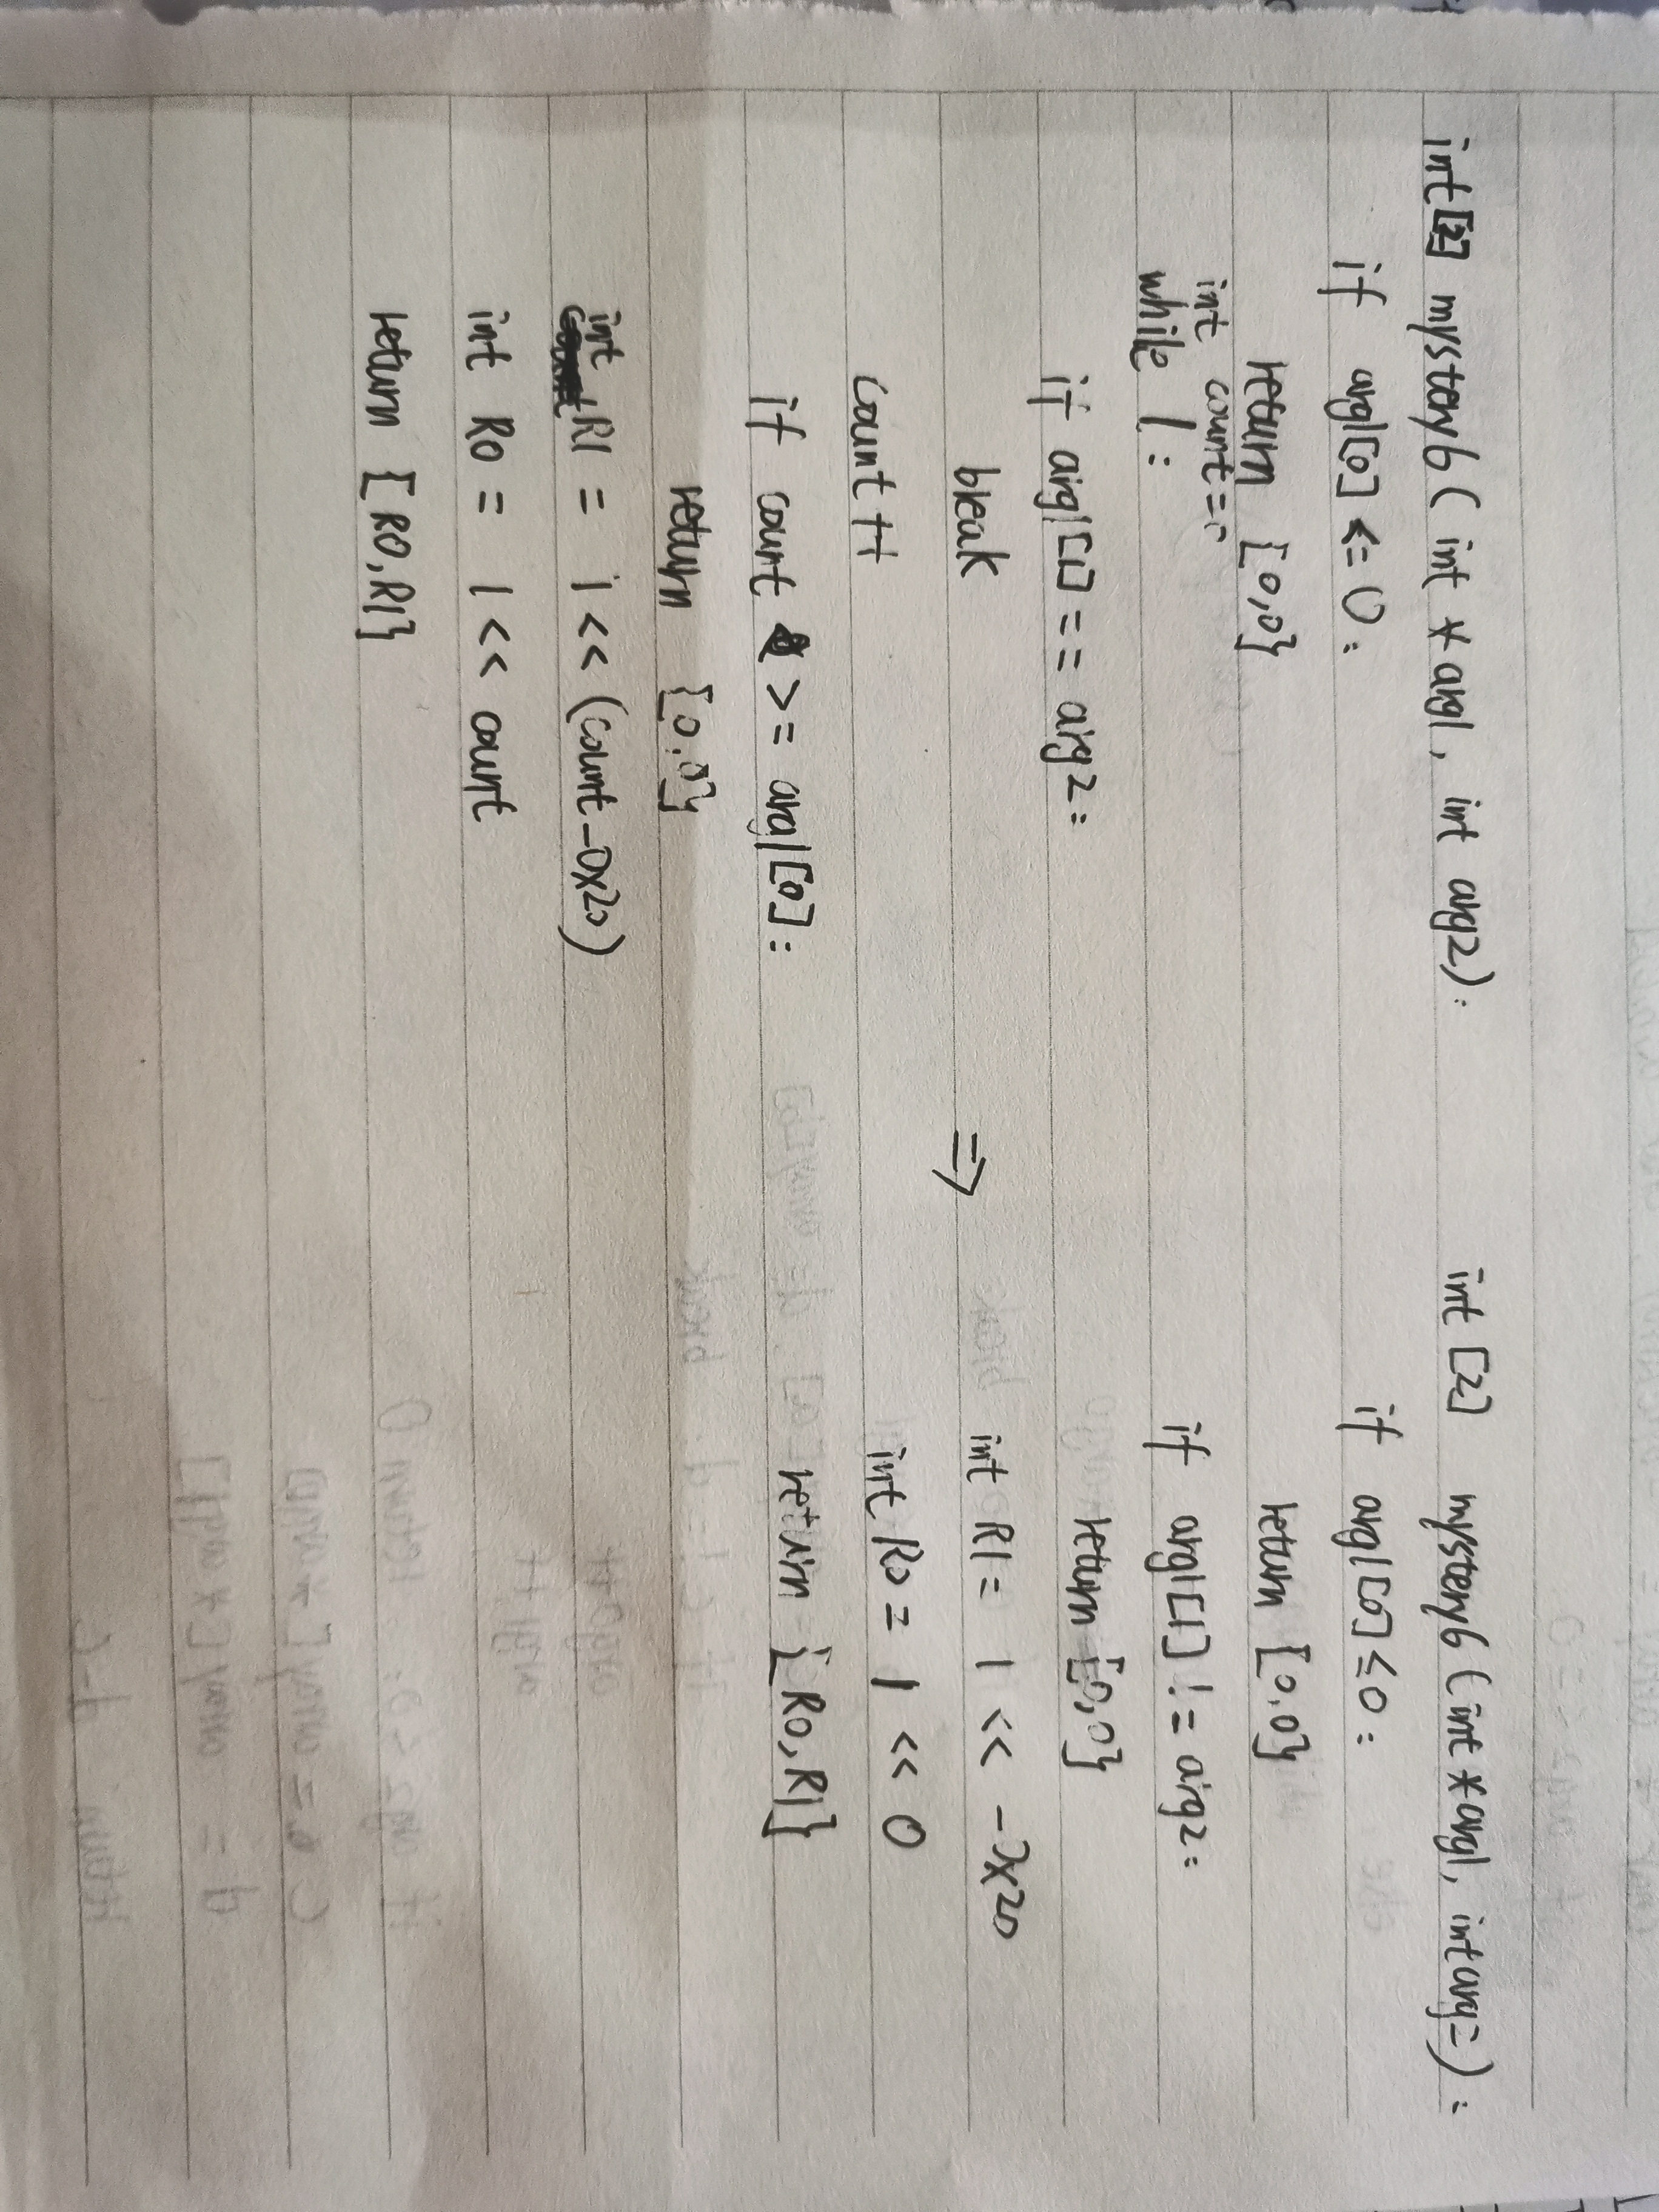 int[2] mystery6( int *arg1, int arg2):
if arg1[0] <= 0:
return [0,0}
int count=0
while 1:
if arg1[1] == arg2:
break
count ++
if count >= arg1[0]:
return [0,0}
int R1 = 1 << (count-0x20)
int R0 = 1 << count
return [R0,R1}
=>
int [2] mystery6 (int *arg1, int arg2):
if arg1[0] ≤ 0:
return [0,0}
if arg1[1] != arg2:
return [0,0}
int R1 = 1 << -0x20
int R0 = 1 << 0
return [R0,R1}